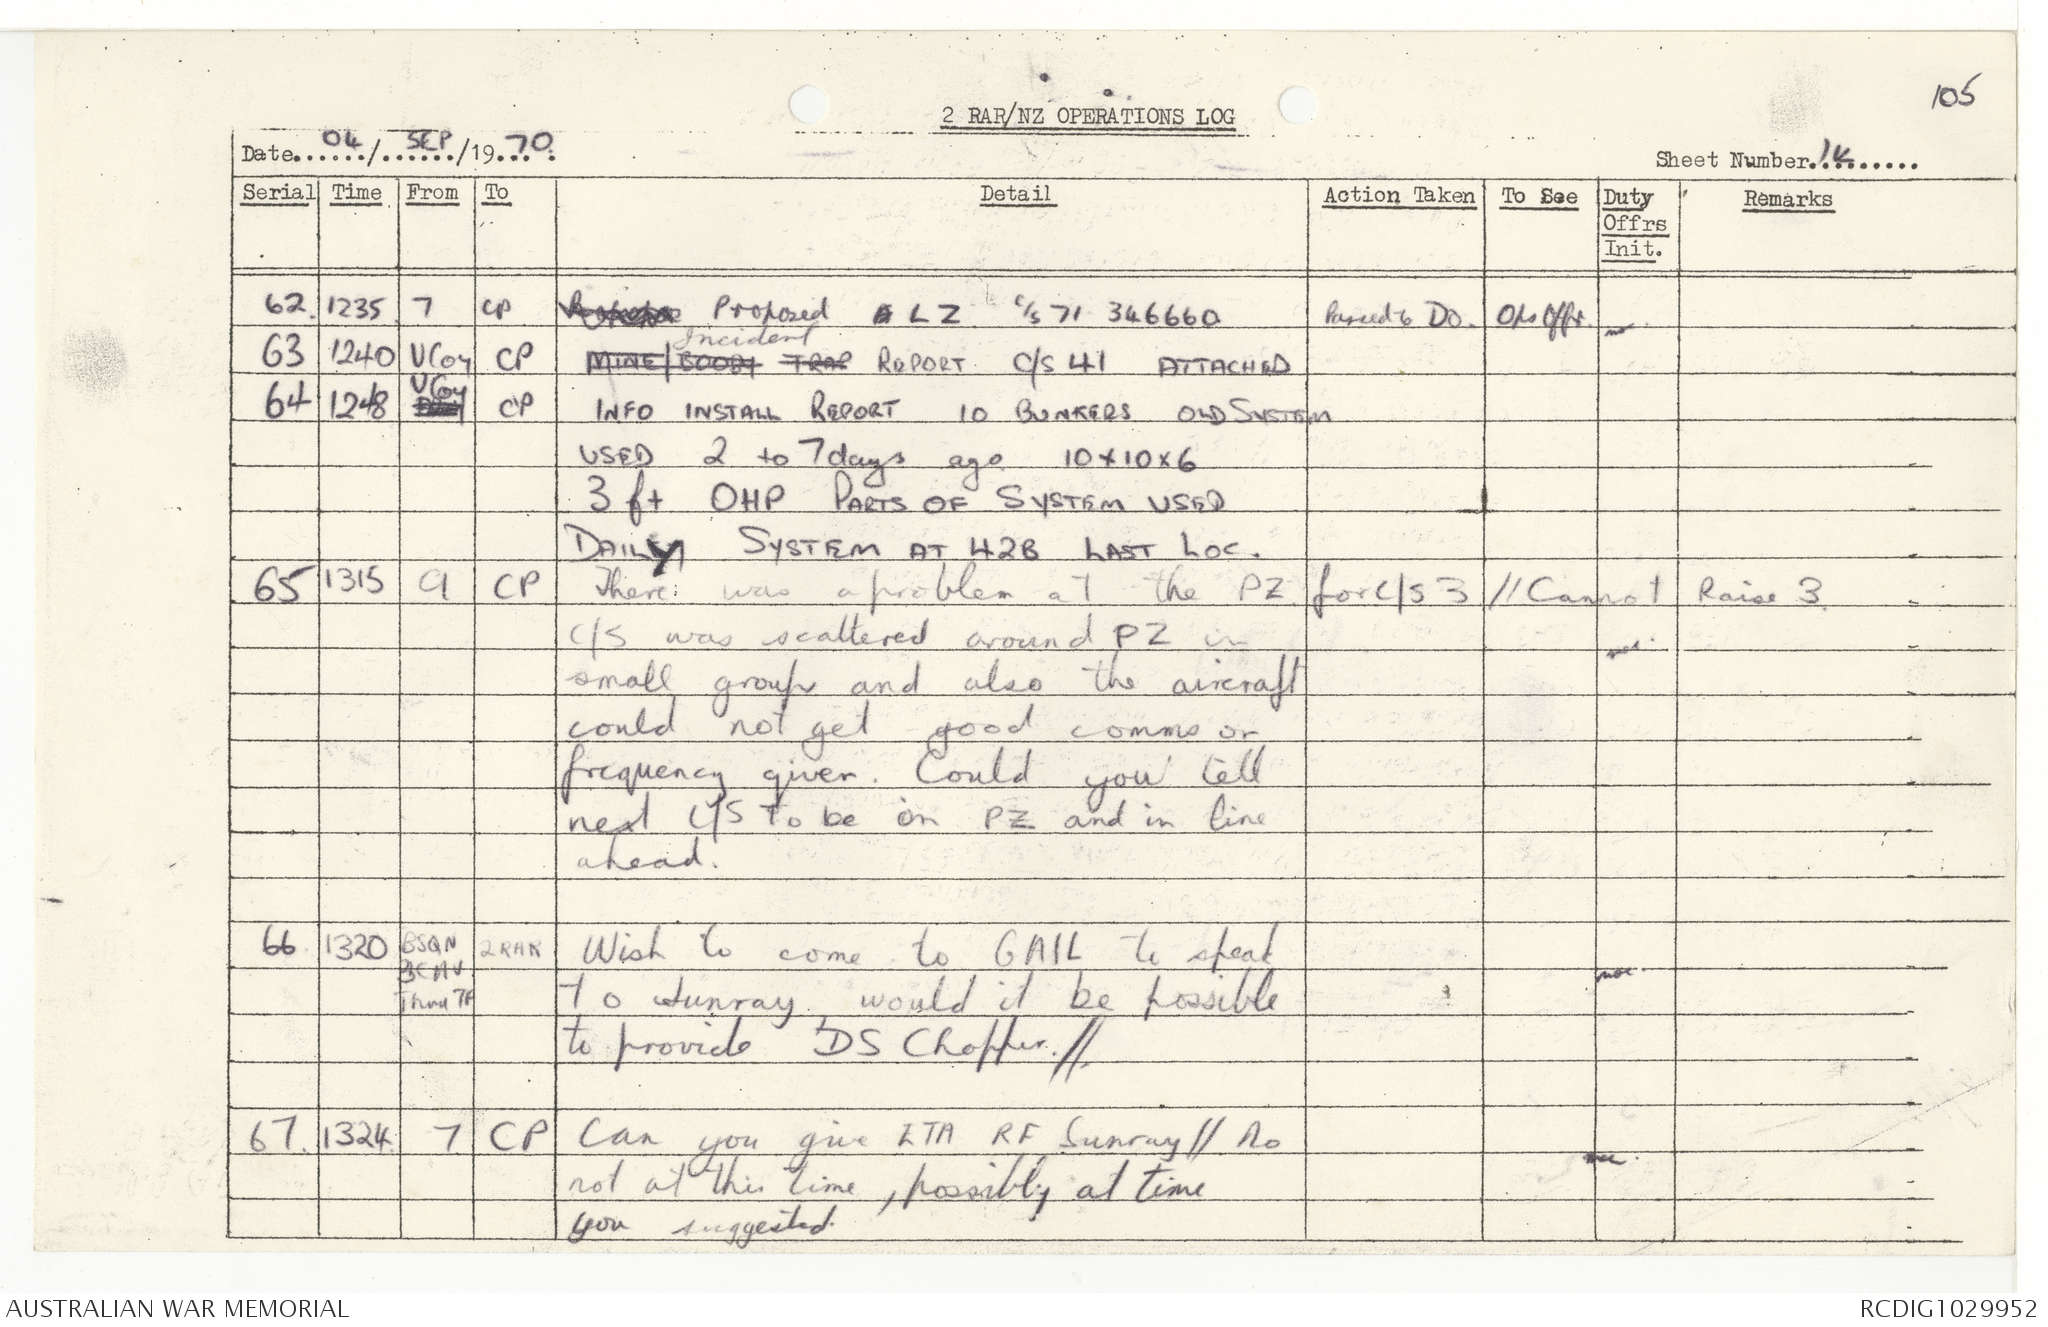 105
2 RAR/NZ OPERATIONS LOG
Date 04/SEP/1970.
Sheet Number
Serial Time From To Detail Action Taken To See Duty Offrs Init. Remarks
62. 1235 7 CP Proposed LZ C/S 71 346660 Passed to DO. Ops Offr.
Incident
63 1240 VCoy CP MINE/BOOBY TRAP REPORT C/S 41 ATTACHED
64 1248 VCoy CP INFO INSTALL REPORT 10 BUNKERS OLD SYSTEM
USED 2 to 7 days ago 10x10x6
3 ft OHP PARTS OF SYSTEM USED
DAILY SYSTEM AT 42B LAST LOC.
65 1315 9 CP There was a problem at the PZ for C/S 3 // Cannot Raise 3.
C/S was scattered around PZ in
small group and also the aircraft
could not get good comms on
frequency given. Could you tell
next C/S to be on PZ and in line
ahead.
66. 1320 BSQN 2RAR Wish to come to GAIL to speak
3CAV
Thru TF to Sunray. would it be possible
to provide DS Chopper. //
67. 1324. 7 CP Can you give ETA RF Sunray // No
not at this time, possibly at time
you suggested.
AUSTRALIAN WAR MEMORIAL
RCDIG1029952